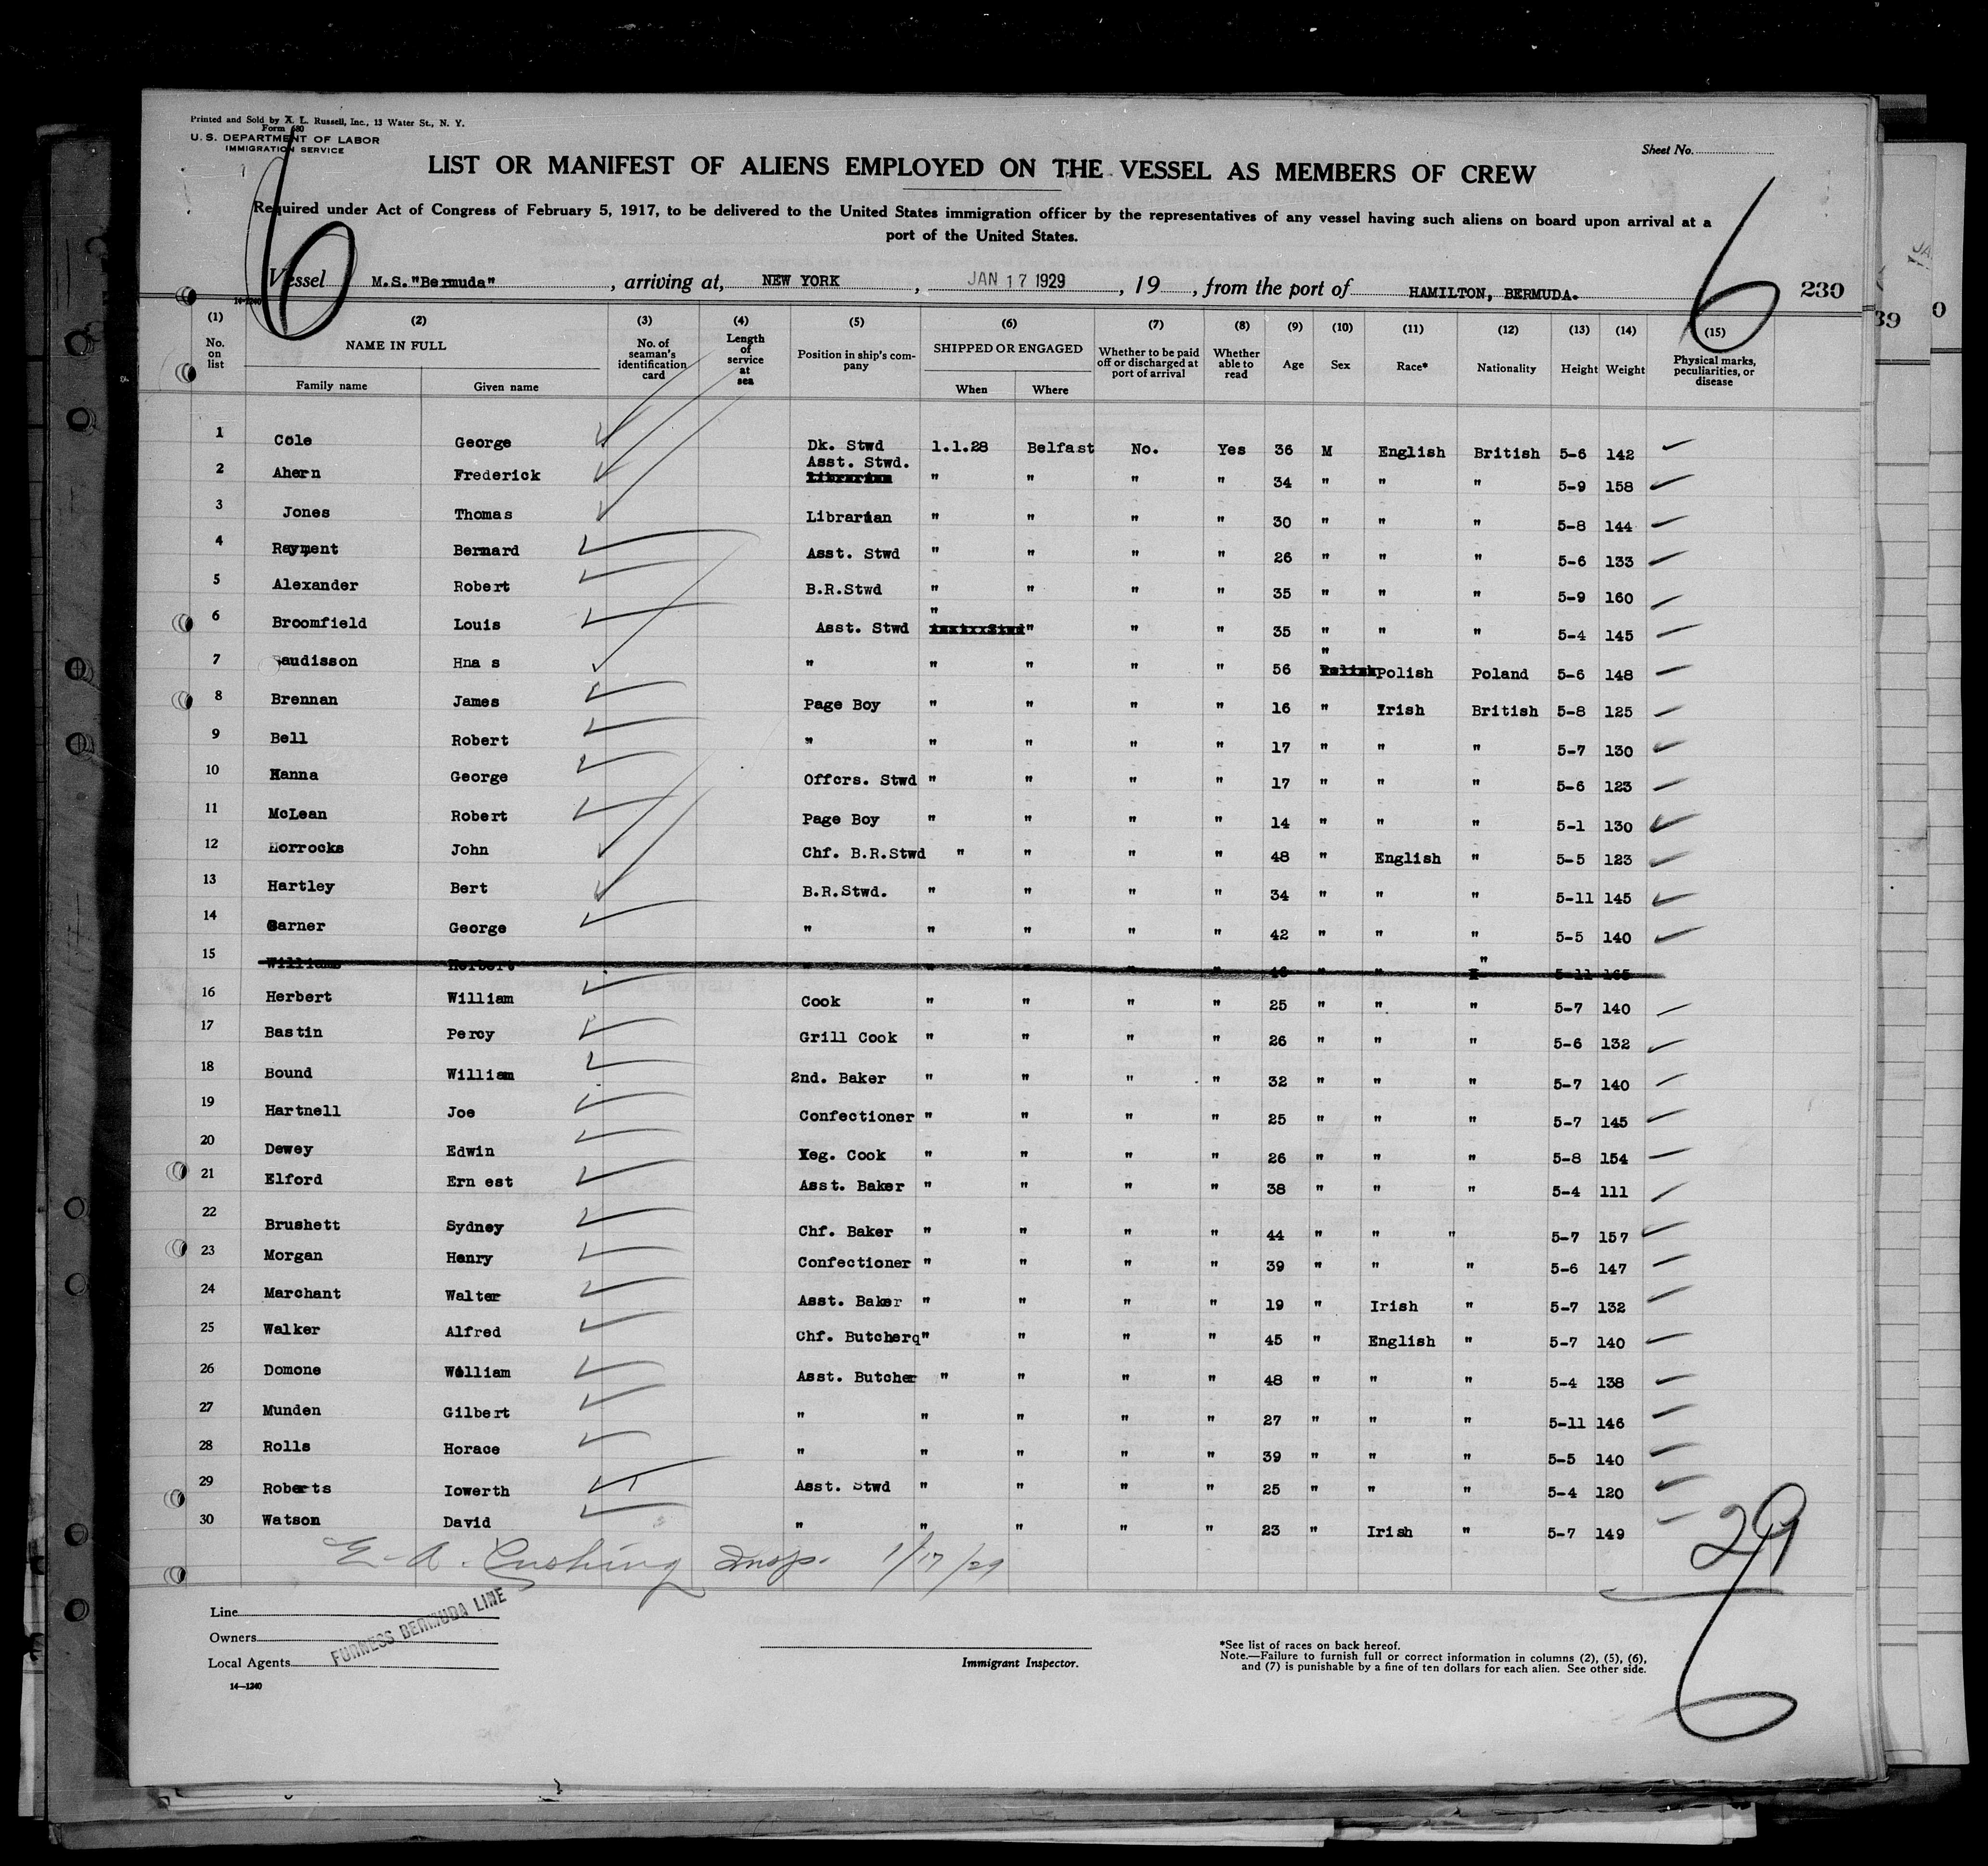 Printed and Sold by A. L. Russell, Inc., 13 Water St., N. Y.
Form 680
U. S. DEPARTMENT OF LABOR
IMMIGRATION SERVICE
Sheet No.
LIST OR MANIFEST OF ALIENS EMPLOYED ON THE VESSEL AS MEMBERS OF CREW
Required under Act of Congress of February 5, 1917, to be delivered to the United States immigration officer by the representatives of any vessel having such aliens on board upon arrival at a
port of the United States.
6 6
Vessel M.S."Bermuda" , arriving at, NEW YORK , JAN 17 1929 , 19 , from the port of HAMILTON, BERMUDA. 230
14-1240
(1) (2) (3) (4) (5) (6) (7) (8) (9) (10) (11) (12) (13) (14) (15)
No. on list NAME IN FULL Family name Given name No. of seaman's identification card Length of service at sea Position in ship's company SHIPPED OR ENGAGED When Where Whether to be paid off or discharged at port of arrival Whether able to read Age Sex Race* Nationality Height Weight Physical marks, peculiarities, or disease
1 Cole George Dk. Stwd 1.1.28 Belfast No. Yes 36 M English British 5-6 142
2 Ahern Frederick Asst. Stwd. Librarian " " " " 34 " " " 5-9 158
3 Jones Thomas Librarian " " " " 30 " " " 5-8 144
4 Rayment Bernard Asst. Stwd " " " " 26 " " " 5-6 133
5 Alexander Robert B.R.Stwd " " " " 35 " " " 5-9 160
6 Broomfield Louis Asst. Stwd " " " " 35 " " " 5-4 145
7 audisson Hna s " " " " " 56 " Polish Poland 5-6 148
8 Brennan James Page Boy " " " " 16 " Irish British 5-8 125
9 Bell Robert " " " " " 17 " " " 5-7 130
10 Hanna George Offcrs. Stwd " " " " 17 " " " 5-6 123
11 McLean Robert Page Boy " " " " 14 " " " 5-1 130
12 Horrocks John Chf. B.R.Stwd " " " " 48 " English " 5-5 123
13 Hartley Bert B.R.Stwd. " " " " 34 " " " 5-11 145
14 Garner George " " " " " 42 " " " 5-5 140
15 Williams Herbert " " " " " " " " 5-11 165
16 Herbert William Cook " " " " 25 " " " 5-7 140
17 Bastin Percy Grill Cook " " " " 26 " " " 5-6 132
18 Bound William 2nd. Baker " " " " 32 " " " 5-7 140
19 Hartnell Joe Confectioner " " " " 25 " " " 5-7 145
20 Dewey Edwin Veg. Cook " " " " 26 " " " 5-8 154
21 Elford Ern est Asst. Baker " " " " 38 " " " 5-4 111
22 Brushett Sydney Chf. Baker " " " " 44 " " " 5-7 157
23 Morgan Henry Confectioner " " " " 39 " " " 5-6 147
24 Marchant Walter Asst. Baker " " " " 19 " Irish " 5-7 132
25 Walker Alfred Chf. Butcherq " " " " 45 " English " 5-7 140
26 Domone William Asst. Butcher " " " " 48 " " " 5-4 138
27 Munden Gilbert " " " " " 27 " " " 5-11 146
28 Rolls Horace " " " " " 39 " " " 5-5 140
29 Roberts Iowerth Asst. Stwd " " " " 25 " " " 5-4 120
30 Watson David " " " " " 23 " Irish " 5-7 149
29
E. A. Cushing Insp. 1/17/29
6
Line
Owners
Local Agents
FURNESS BERMUDA LINE
14—1240
Immigrant Inspector.
*See list of races on back hereof.
Note.—Failure to furnish full or correct information in columns (2), (5), (6),
and (7) is punishable by a fine of ten dollars for each alien. See other side.
39
0
JA